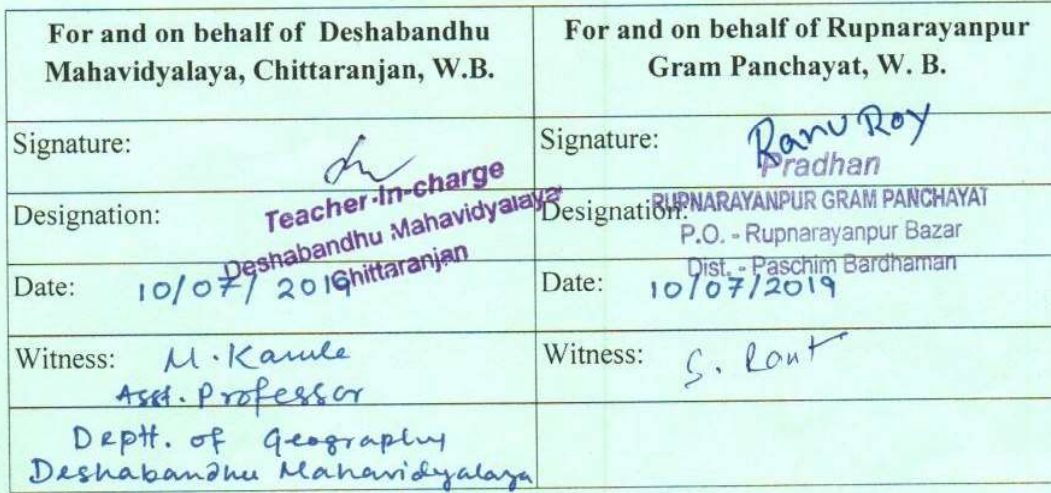 For and on behalf of Deshabandhu
Mahavidyalaya, Chittaranjan, W.B.
For and on behalf of Rupnarayanpur
Gram Panchayat, W. B.
Signature:
Signature: Ranu Roy
Pradhan
Designation:
Teacher-In-charge
Deshabandhu Mahavidyalaya
Chittaranjan
Designation:
RUPNARAYANPUR GRAM PANCHAYAT
P.O. - Rupnarayanpur Bazar
Dist. - Paschim Bardhaman
Date: 10/07/2019
Date: 10/07/2019
Witness: M.
Asst. Professor
Deptt. of Geography
Deshabandhu Mahavidyalaya
Witness: S.